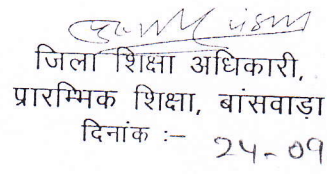 जिला शिक्षा अधिकारी,
प्रारम्भिक शिक्षा, बांसवाड़ा
दिनांक :– 24-09